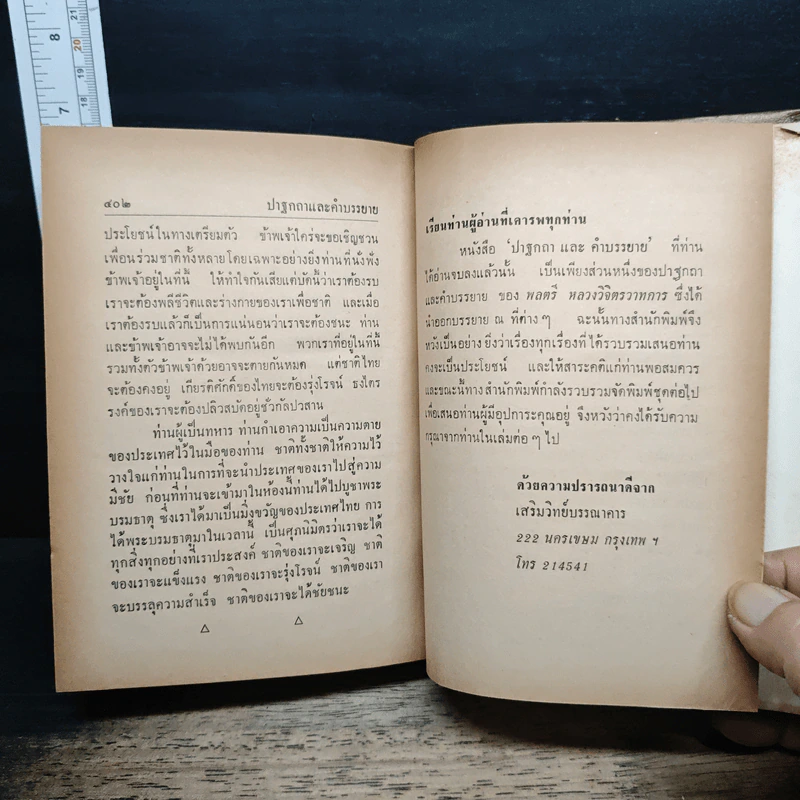 ๔๐๒ ปาฐกถาและคำบรรยาย
ประโยชน์ในทางเตรียมตัว ข้าพเจ้าใคร่จะขอเชิญชวน
เพื่อนร่วมชาติทั้งหลายโดยเฉพาะอย่างยิ่งท่านที่นั่งฟัง
ข้าพเจ้าอยู่ในที่นี้ ให้ทำใจกันเสียแต่บัดนี้ว่าเราต้องรบ
เราจะต้องพลีชีวิตและร่างกายของเราเพื่อชาติ และเมื่อ
เราต้องรบแล้วก็เป็นการแน่นอนว่าเราจะต้องชนะ ท่าน
และข้าพเจ้าอาจจะไม่ได้พบกันอีก พวกเราที่อยู่ในที่นี้
รวมทั้งตัวข้าพเจ้าด้วยอาจจะตายกันหมด แต่ชาติไทย
จะต้องคงอยู่ เกียรติศักดิ์ของไทยจะต้องรุ่งโรจน์ ธงไตร
รงค์ของเราจะต้องปลิวสบัดอยู่ชั่วกัลปวสาน
ท่านผู้เป็นทหาร ท่านกำเอาความเป็นความตาย
ของประเทศไว้ในมือของท่าน ชาติทั้งชาติให้ความไว้
วางใจแก่ท่านในการที่จะนำประเทศของเราไปสู่ความ
มีชัย ก่อนที่ท่านจะเข้ามาในห้องนี้ท่านได้ไปบูชาพระ
บรมธาตุ ซึ่งเราได้มาเป็นมิ่งขวัญของประเทศไทย การ
ได้พระบรมธาตุมาในเวลานี้ เป็นศุภนิมิตรว่าเราจะได้
ทุกสิ่งทุกอย่างที่เราประสงค์ ชาติของเราจะเจริญ ชาติ
ของเราจะแข็งแรง ชาติของเราจะรุ่งโรจน์ ชาติของเรา
จะบรรลุความสำเร็จ ชาติของเราจะได้ชัยชนะ
เรียนท่านผู้อ่านที่เคารพทุกท่าน
หนังสือ 'ปาฐกถา และ คำบรรยาย' ที่ท่าน
ได้อ่านจบลงแล้วนั้น เป็นเพียงส่วนหนึ่งของปาฐกถา
และคำบรรยาย ของ พลตรี หลวงวิจิตรวาทการ ซึ่งได้
นำออกบรรยาย ณ ที่ต่าง ๆ ฉะนั้นทางสำนักพิมพ์จึง
หวังเป็นอย่างยิ่งว่าเรื่องทุกเรื่องที่ได้รวบรวมเสนอท่าน
คงจะเป็นประโยชน์ และให้สาระคดีแก่ท่านพอสมควร
และขณะนี้ทางสำนักพิมพ์กำลังรวบรวมจัดพิมพ์ชุดต่อไป
เพื่อเสนอท่านผู้มีอุปการะคุณอยู่ จึงหวังว่าคงได้รับความ
กรุณาจากท่านในเล่มต่อ ๆ ไป
ด้วยความปรารถนาดีจาก
เสริมวิทย์บรรณาคาร
222 นครเขษม กรุงเทพ ฯ
โทร 214541
8
7
21
20
19
18